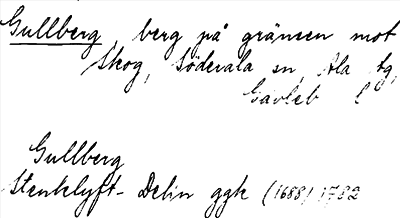 Gullberg, berg på gränsen mot
Skog, Söderala sn, Ala tg,
Gävleb l
Gullberg
Stenklyft- Delin ggk (1688) 1782